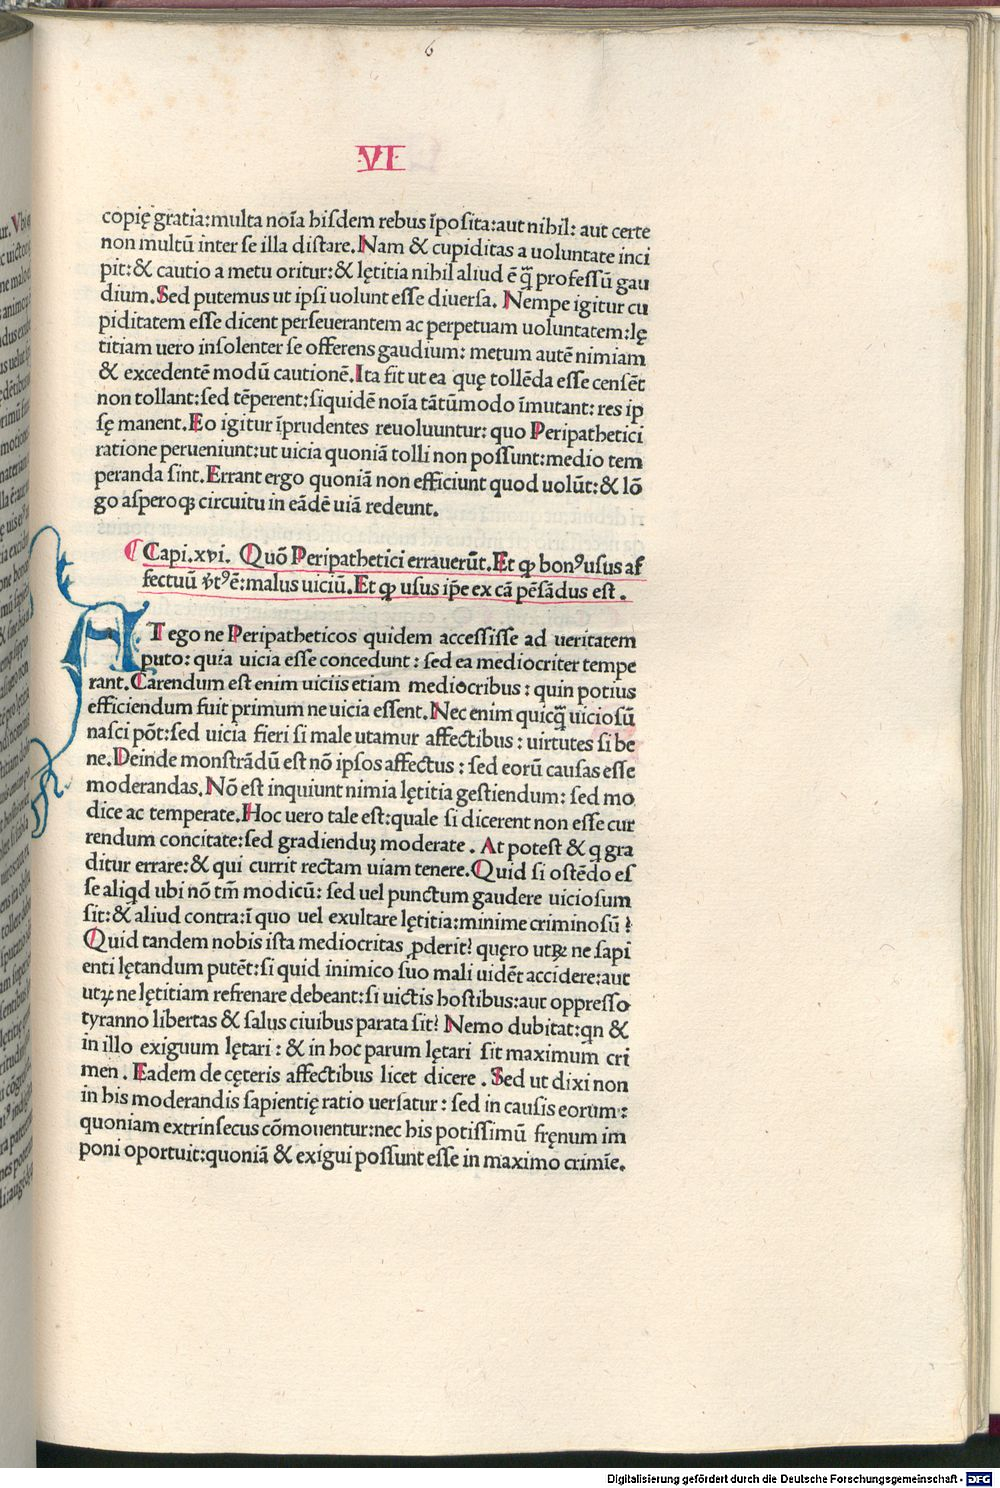 6
·VI·
copię gratia:multa noīa hiſdem rebus īpoſita:aut nihil: aut certe
non multū inter ſe illa diſtare.Nam & cupiditas a uoluntate inci
pit:& cautio a metu oritur:& lętitia nihil aliud ē q̄ profeſſū gau
dium.Sed putemus ut ipſi uolunt eſſe diuerſa. Nempe igitur cu
piditatem eſſe dicent perſeuerantem ac perpetuam uoluntatem:lę
titiam uero inſolenter ſe offerens gaudium: metum autē nimiam
& excedentē modū cautionē.Ita fit ut ea quę tollēda eſſe cenſēt
non tollant:ſed tēperent:ſiquidē noīa tātūmodo īmutant: res ip
ſę manent.Eo igitur īprudentes reuoluuntur: quo Peripathetici
ratione perueniunt:ut uicia quoniā tolli non poſſunt:medio tem
peranda ſint.Errant ergo quoniā non efficiunt quod uolūt:& lō
go aſperoqꝫ circuitu in eādē uiā redeunt.
¶ Capi.xvi. Quō Peripathetici errauerūt.Et ꝙ bonꝰuſus af
fectuū v̄tꝰē:malus uiciū.Et ꝙ uſus ip̄e ex cā pēſādus eſt.
AT ego ne Peripatheticos quidem acceſſiſſe ad ueritatem
puto: quia uicia eſſe concedunt: ſed ea mediocriter tempe
rant.Carendum eſt enim uiciis etiam mediocribus: quin potius
efficiendum fuit primum ne uicia eſſent.Nec enim quicq̄ uicioſū
naſci pōt:ſed uicia fieri ſi male utamur affectibus: uirtutes ſi be
ne.Deinde monſtrādū eſt nō ipſos affectus: ſed eorū cauſas eſſe
moderandas.Nō eſt inquiunt nimia lętitia geſtiendum: ſed mo
dice ac temperate.Hoc uero tale eſt:quale ſi dicerent non eſſe cur
rendum concitate:ſed gradienduꝫ moderate. At poteſt & q gra
ditur errare:& qui currit rectam uiam tenere.Quid ſi oſtēdo eſ
ſe aliqd ubi nō tm̄ modicū: ſed uel punctum gaudere uicioſum
ſit:& aliud contra:ī quo uel exultare lętitia:minime criminoſū?
Quid tandem nobis iſta mediocritas ꝓderit? quęro utꝝ ne ſapi
enti lętandum putēt:ſi quid inimico ſuo mali uidēt accidere:aut
utꝝ ne lętitiam refrenare debeant:ſi uictis hoſtibus:aut oppreſſo
tyranno libertas & ſalus ciuibus parata ſit? Nemo dubitat:qn &
in illo exiguum lętari: & in hoc parum lętari ſit maximum cri
men. Eadem de cęteris affectibus licet dicere. Sed ut dixi non
in his moderandis ſapientię ratio uerſatur: ſed in cauſis eorum:
quoniam extrinſecus cōmouentur:nec his potiſſimū fręnum im
poni oportuit:quoniā & exigui poſſunt eſſe in maximo crimīe.
Digitalisierung gefördert durch die Deutsche Forschungsgemeinschaft - DFG